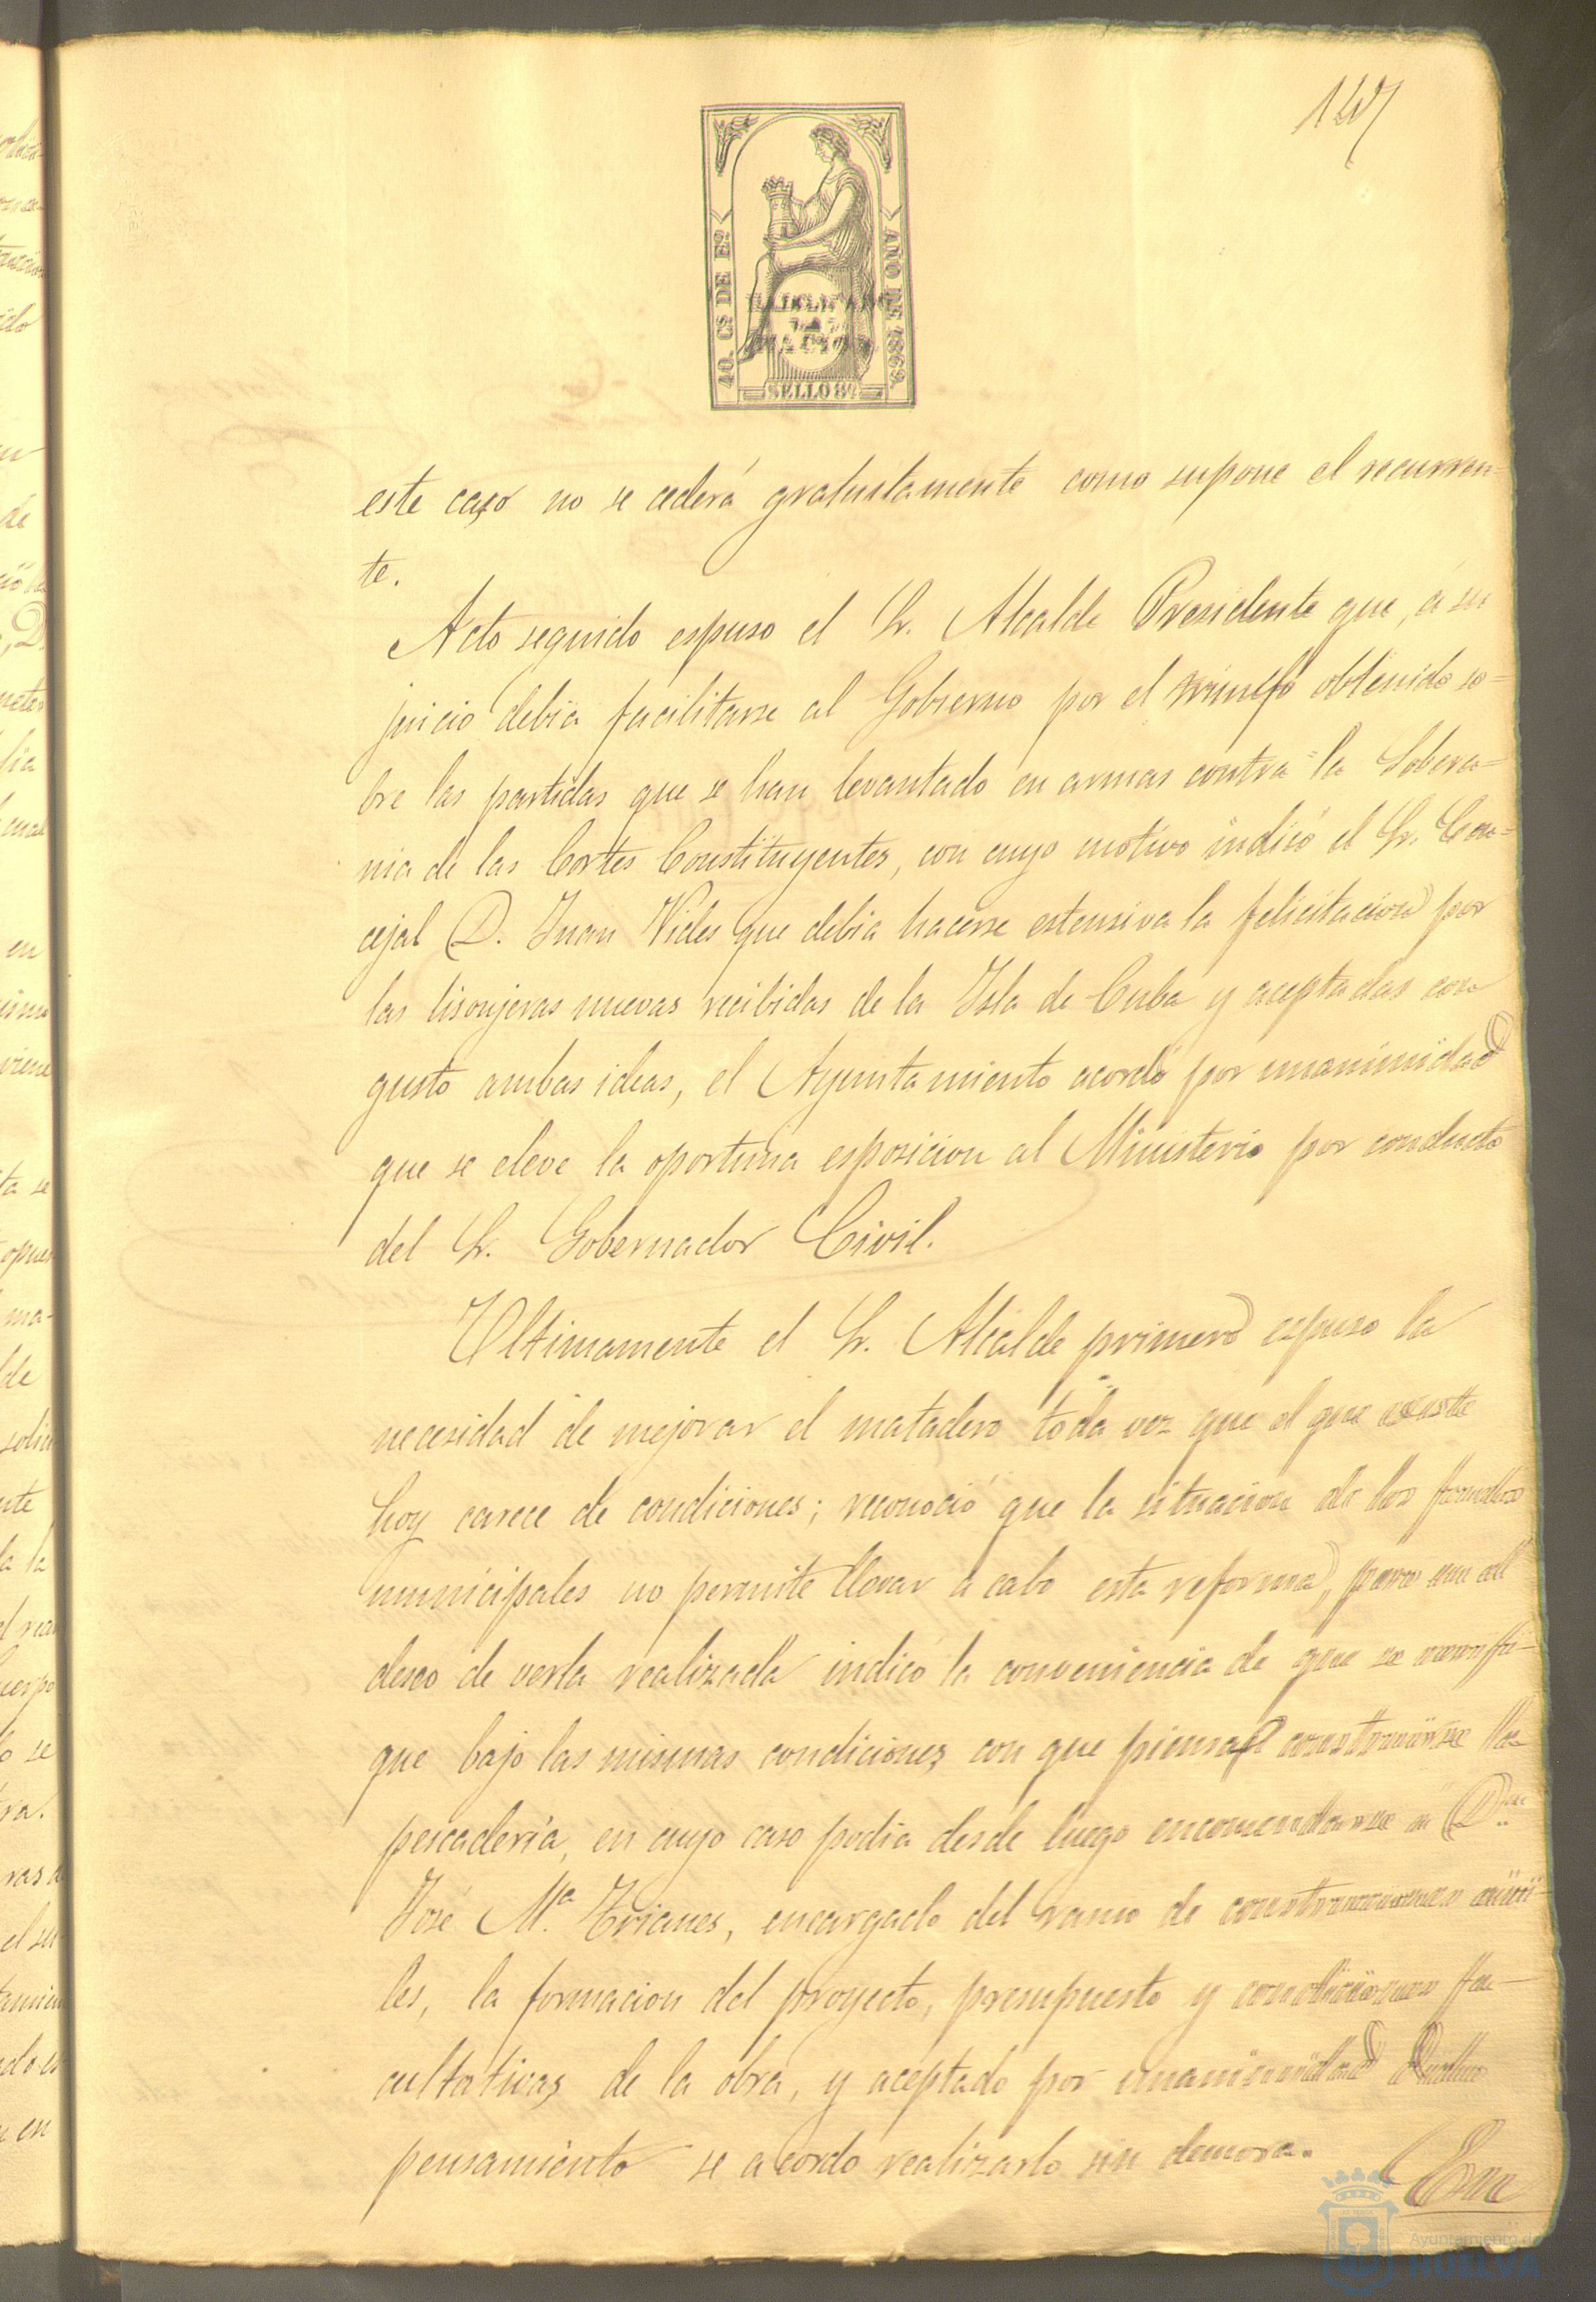 147
40. Cs. DE Eo.
AÑO DE 1869.
HABILITADO
POR LA
NACION.
SELLO 8º
este caso no se cederá gratuitamente como supone el recurren=
te.
Acto seguido espuso el Sr. Alcalde Presidente que, á su
juicio debia facilitarse al Gobierno por el triunfo obtenido so=
bre las partidas que se han levantado en armas contra la Sobera=
nia de las Cortes Constituyentes, con cuyo motivo indicó el Sr. Con=
cejal D. Juan Vides que debia hacerse estensiva la felicitacion por
las lisonjeras nuevas recibidas de la Isla de Cuba y aceptadas con
gusto ambas ideas, el Ayuntamiento acordó por unanimidad
que se eleve la oportuna esposicion al Ministerio por conducto
del Sr. Gobernador Civil.
Ultimamente el Sr. Alcalde primero espuso la
necesidad de mejorar el matadero toda vez que el que existe
hoy carece de condiciones; reconoció que la situacion de los fondos
municipales no permite llevar á cabo esta reforma, pero en el
deseo de verla realizada indicó la conveniencia de que se verifi-
que bajo las mismas condiciones con que piensa construirse la
pescadería, en cuyo caso podia desde luego encomendarse á Dn.
José Mª Trianes, encargado del ramo de construcciones civi-
les, la formacion del proyecto, presupuesto y condiciones fa-
cultativas de la obra, y aceptado por unanimidad dicho
pensamiento se acordó realizarlo sin demora.
En
Ayuntamiento de
HUELVA